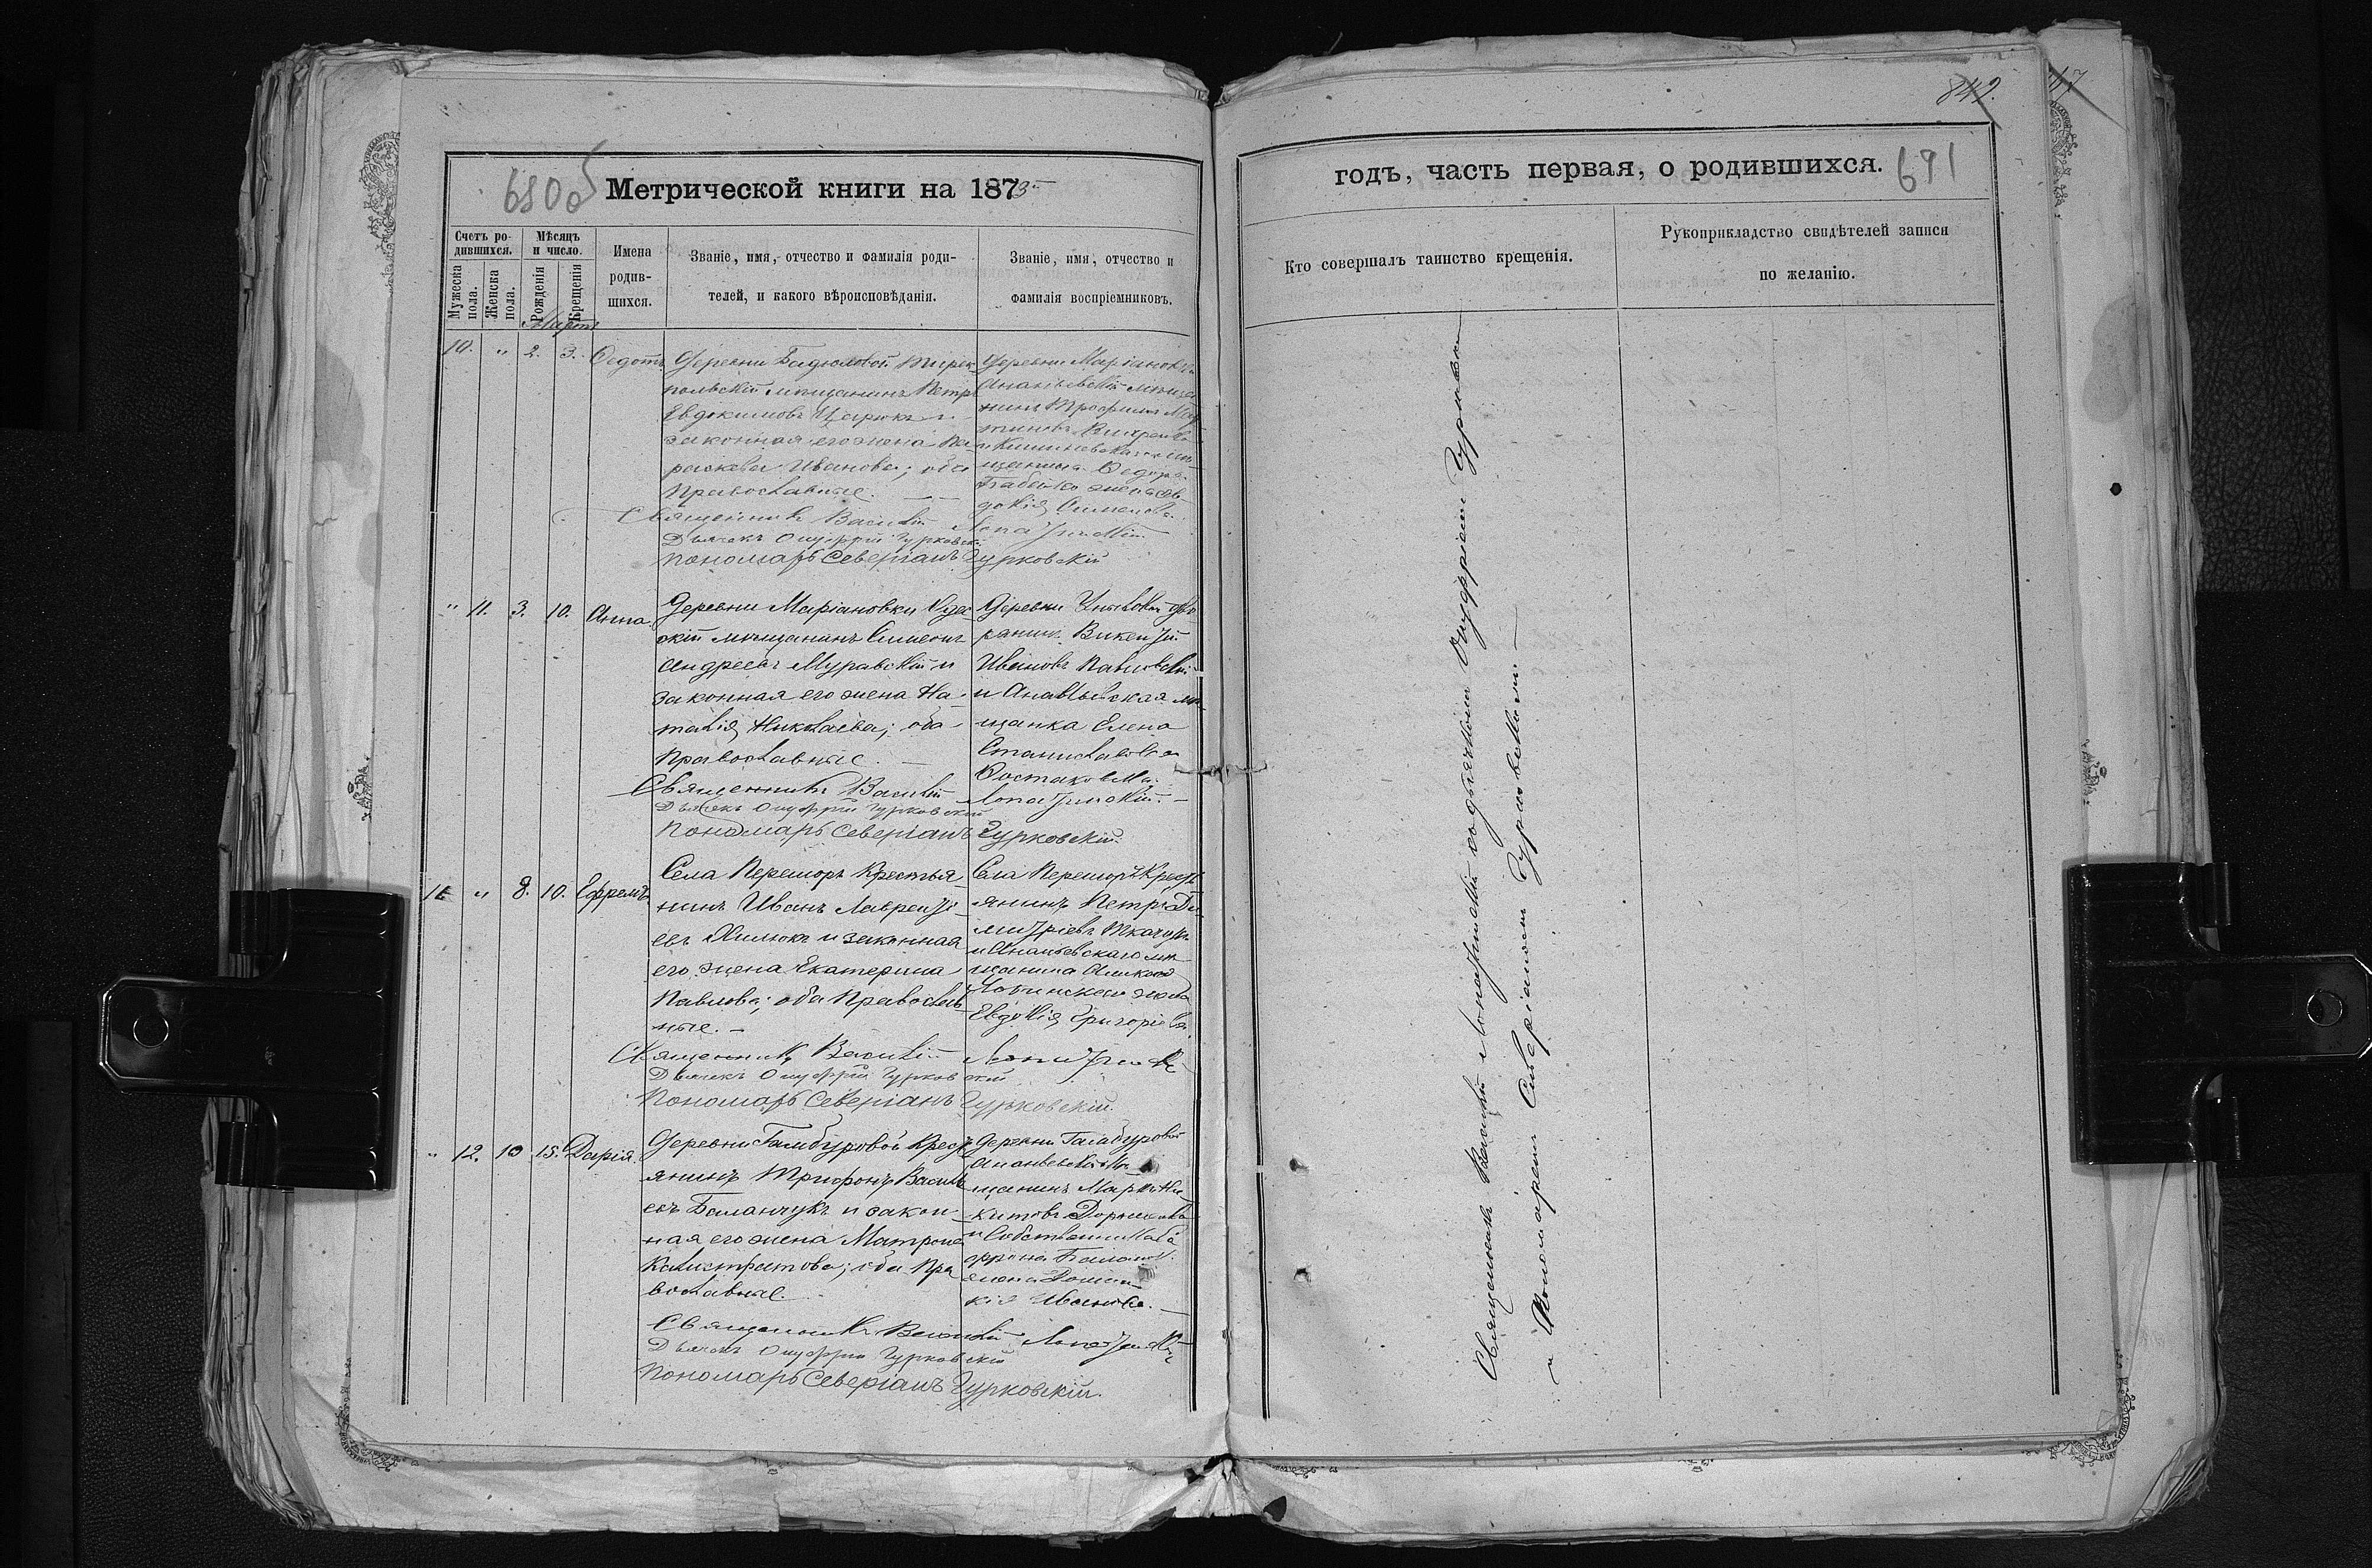 680 об
Метрической книги на 1873
Счетъ ро-
дившихся.
Мужеска пола.
Женска пола.
Мѣсяцъ
и число.
Рожденія
Крещенія
Имена
родив-
шихся.
Званіе, имя, отчество и фамилія роди-
телей, и какого вѣроисповѣданія.
Званіе, имя, отчество и
фамилія воспріемниковъ.
Мартъ
10. " 2. 3. Ѳедотъ
Деревни Тирас-
польскій мѣщанинъ Петръ
Евдокимовъ Царюкъ и
законная его жена Па-
раскева Иванова; оба
Православные.
Деревни Маріановки
Ананьевскій мѣща-
нинъ Трофимъ
и Кишиневскаго мѣ-
щанина Ѳедора
Бабенко жена Ев-
докія Симеонова
Священникъ Василій Лопатинскій
Дьячекъ Онуфрій Гурковскій
Пономарь Северіанъ Гурковскій
" 11. 3. 10. Анна.
Деревни Маріановки Одес-
скій мѣщанинъ Симеонъ
Андреевъ Муравскій и
законная его жена На-
талія Николаева; оба
Православные.
Деревни дво-
рянинъ Викентій
Ивановъ Павловскій
и Ананьевская мѣ-
щанка Елена
Станиславова
Священникъ Василій Лопатинскій.
Дьячекъ Онуфрій Гурковскій
Пономарь Северіанъ Гурковскій.
11 " 8. 10. Ефремъ.
Села Перешоръ Крестья-
нинъ Иванъ Лавренті-
евъ и законная
его жена Екатерина
Павлова; оба Православ-
ные.
Села Перешоръ Кресть-
янинъ Петръ Ди-
митріевъ Ткачукъ
и Ананьевскаго мѣ-
щанина
жена
Евдокія Григоріева.
Священникъ Василій Лопатинскій
Дьячекъ Онуфрій Гурковскій
Пономарь Северіанъ Гурковскій.
" 12. 10 15. Дарія.
Деревни Гамбуровой Крест-
янинъ Трифонъ Василь-
евъ Баланчукъ и закон-
ная его жена Матрона
Калистратова; оба Пра-
вославные.
Деревни Гамбуровой
Ананьевскій мѣ-
щанинъ Маркъ Ни-
китовъ
и Собственника
жена
кія Иванова.
Священникъ Василій Лопатинскій
Дьячекъ Онуфрій Гурковскій
Пономарь Северіанъ Гурковскій.
842.
годъ, часть первая, о родившихся.
691
Кто совершалъ таинство крещенія.
Рукоприкладство свидѣтелей записи
по желанію.
Священникъ Василій Лопатинскій съ дьячкомъ Онуфріемъ Гурковскимъ
и Пономаремъ Северіаномъ Гурковскимъ.